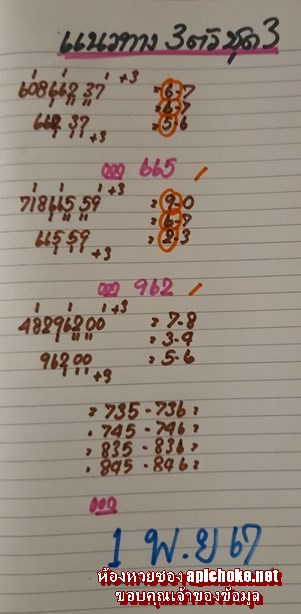 แนวทาง 3 ตัว ชุด 3
608662 37 +3 = 6-7
= 6-7
662 37 +3 = 5-6
ออก 665 /
718665 59 +3 = 9-0
= 6-7
665 59 +3 = 2-3
ออก 962 /
482962 00 +3 = 7-8
= 3-4
962 00 +3 = 5-6
= 735 - 736 =
= 745 - 746 =
= 835 - 836 =
= 845 - 846 =
ออก
1 พ.ย 67
ห้องหวยซอง apichoke.net
ขอบคุณเจ้าของข้อมูล